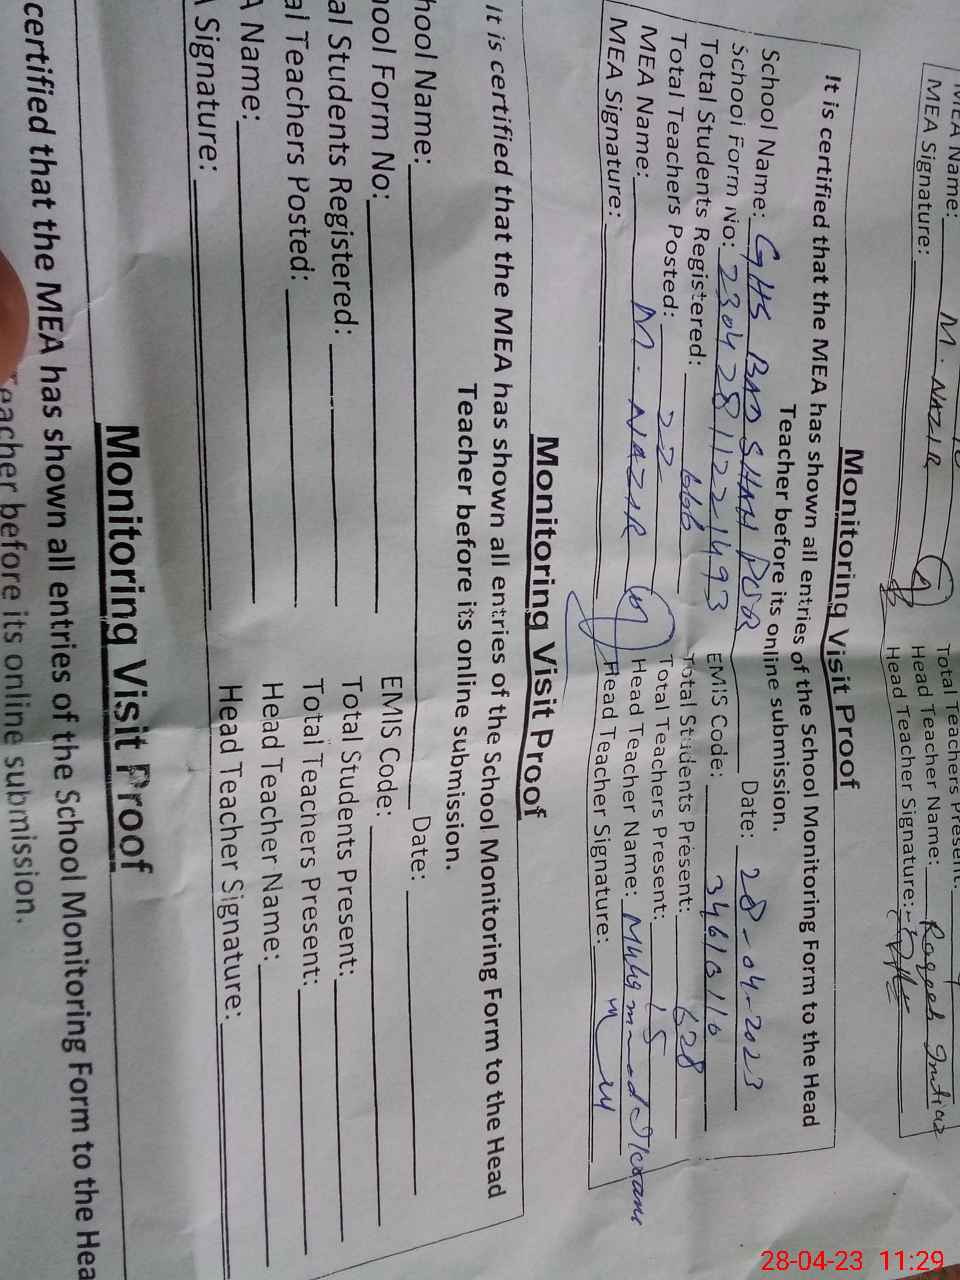 MEA Name: M. NAZIR
MEA Signature:
Total Teachers Present:
Head Teacher Name:
Head Teacher Signature:
Monitoring Visit Proof
It is certified that the MEA has shown all entries of the School Monitoring Form to the Head
Teacher before its online submission.
School Name: GHS BAD SHAH PUR Date: 28-04-2023
School Form No: 23042811221493 EMIS Code: 34610116
Total Students Registered: 666 Total Students Present: 628
Total Teachers Posted: 22 Total Teachers Present: 15
MEA Name: M. NAZIR Head Teacher Name: Muhammad
MEA Signature: Head Teacher Signature:
Monitoring Visit Proof
It is certified that the MEA has shown all entries of the School Monitoring Form to the Head
Teacher before its online submission.
hool Name: Date:
hool Form No: EMIS Code:
al Students Registered: Total Students Present:
al Teachers Posted: Total Teachers Present:
A Name: Head Teacher Name:
A Signature: Head Teacher Signature:
Monitoring Visit Proof
certified that the MEA has shown all entries of the School Monitoring Form to the Hea
eacher before its online submission.
28-04-23 11:29